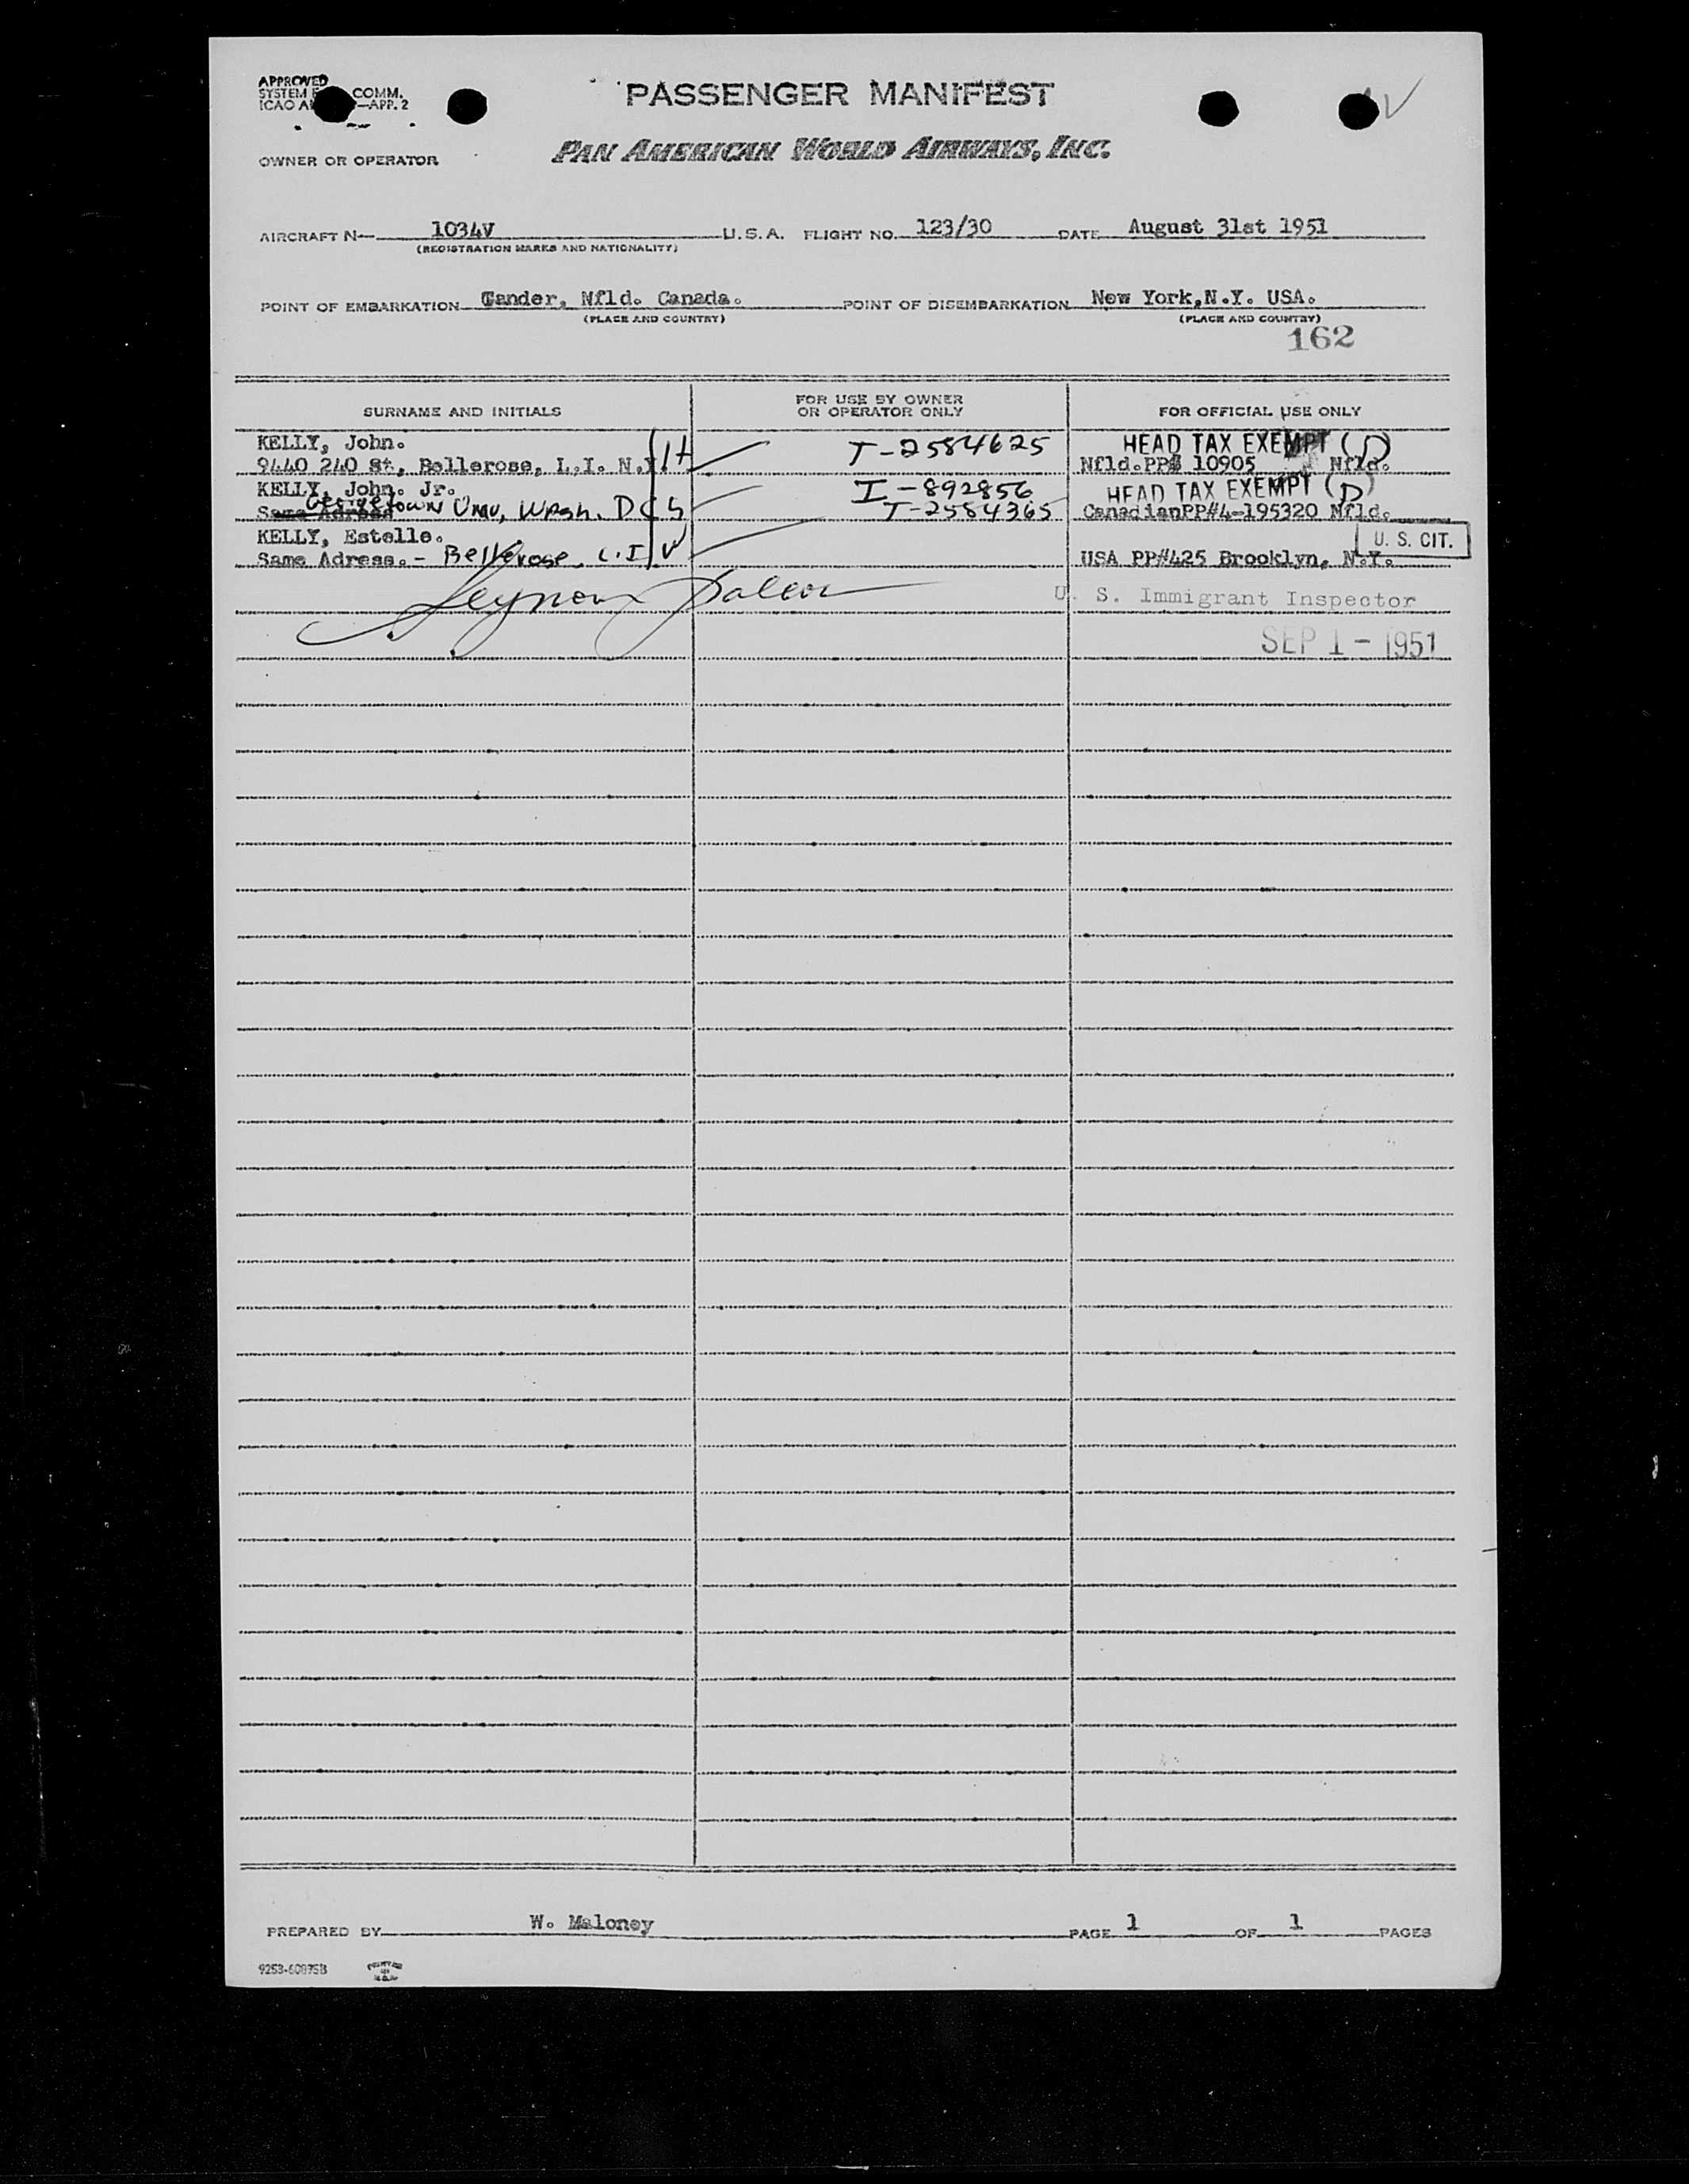 APPROVED
SYSTEM COMM.
ICAO —APP. 2
PASSENGER MANIFEST
OWNER OR OPERATOR
PAN AMERICAN WORLD AIRWAYS, INC.
AIRCRAFT N— 1034V U.S.A. FLIGHT NO. 123/30 DATE August 31st 1951
(REGISTRATION MARKS AND NATIONALITY)
POINT OF EMBARKATION Gander, Nfld. Canada. POINT OF DISEMBARKATION New York,N.Y. USA.
(PLACE AND COUNTRY) (PLACE AND COUNTRY)
162
SURNAME AND INITIALS FOR USE BY OWNER OR OPERATOR ONLY FOR OFFICIAL USE ONLY
KELLY, John. T-2584625 HEAD TAX EXEMPT (D)
9440 240 St, Bellerose, L.I. N.Y. H Nfld.PP# 10905 Nfld.
KELLY, John. Jr. I-892856 HEAD TAX EXEMPT (D)
Same Adress Georgetown Univ, Wash. DC S T-2584365 CanadianPP#4-195320 Nfld.
KELLY, Estelle. U. S. CIT.
Same Adress. - Bellerose, L.I V USA PP#425 Brooklyn, N.Y.
U. S. Immigrant Inspector
SEP 1 - 1951
PREPARED BY W. Maloney PAGE 1 OF 1 PAGES
9253-60875B